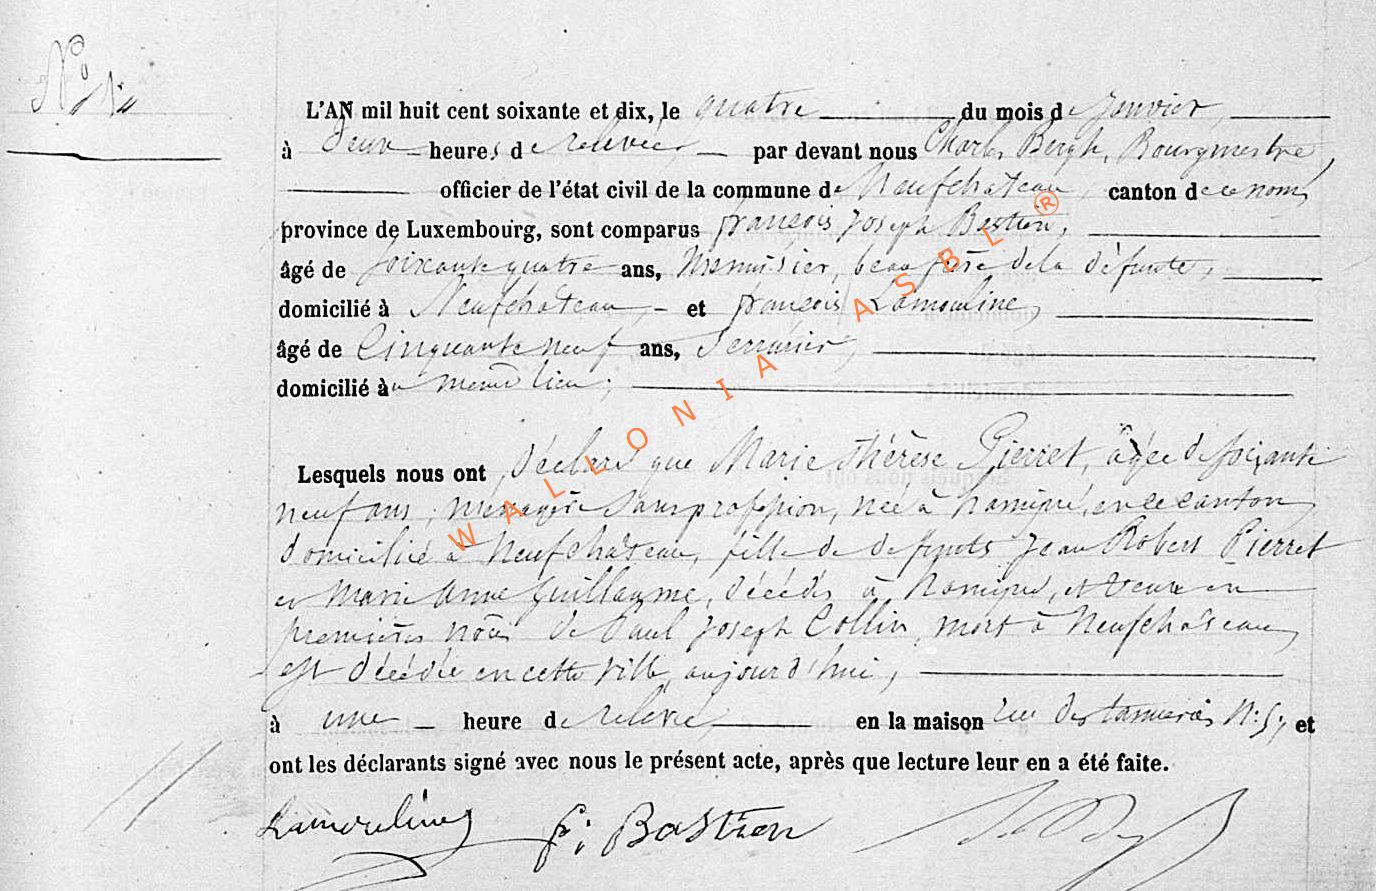 N° 1
L'AN mil huit cent soixante et dix, le quatre du mois de Janvier,
à Deux heures de relevée, par devant nous Charles Bergh, Bourgmestre,
officier de l'état civil de la commune de Neufchâteau, canton de ce nom,
province de Luxembourg, sont comparus françois Joseph Bastien,
âgé de soixante quatre ans, Menuisier, beau frère de la défunte,
domicilié à Neufchâteau, et françois Lamouline,
âgé de Cinquante neuf ans, Serrurier,
domicilié au même lieu;
Lesquels nous ont déclaré que Marie Thérèse Pierret, âgée de soixante
neuf ans, ménagère sans profession, née à hamipré, en ce canton
domiciliée à Neufchâteau, fille de défunts Jean Robert Pierret
et Marie Anne Guillaume, décédés à hamipré, et veuve en
premières nôces de Paul Joseph Collin, mort à Neufchâteau,
est décédée en cette ville, aujourd'hui,
à une heure de relevée, en la maison rue des tanneries N: 5, et
ont les déclarants signé avec nous le présent acte, après que lecture leur en a été faite.
Lamouline f: Bastien
WALLONIA ASBL ®